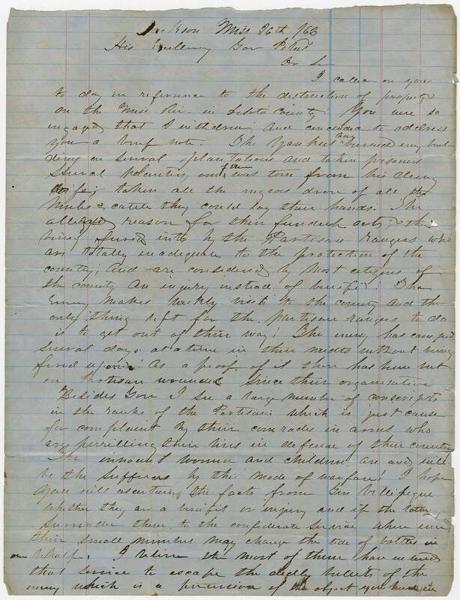 Jackson Miss 26th /63
His Excellency Gov Pettus
Dr Sir
I called on you
to day in reference to the distruction of property
on the Miss Riv. in County You were so
engaged that I withdrew and concluded to address
you a brief note. The Yankees have burned many buil
dings on several plantations and taken prisoners
several Planters one was torn from his dieing
wife, taken all the negroes drove of all the
Mules & cattle they could lay their hands. The
alledged reason for their fundish acts, the
being fired into by the Partisan rangers who
are totally inadequate to the protection of the
county, and are considered by most citizens of
the county an injury instead of benefit. The
Enemy makes weekly visits to the county and the
only thing left for the partisan rangers to do
is to get out of their way! The enemy has camped
several days at a time in their midst without being
fired upon. As a proof of it there has been not
one Partisan wounded since their organisation
Besides Gov I see a large number of conscripts
in the ranks of the Partisans which is just cause
for complaint by their comrades in arms who
are perrilling their lives in defense of their country
The innocent women and children are and will
be the sufferers by the mode of warfare. I hope
you will ascertain the facts from Gen Villipigue
whether they are a benefit or injury and if the latter
surrender them to the confederate service when even
their small numbers may change the tide of battle in
our behalf. I believe the most of them have entered
that service to escape the deadly bullets of the
enemy which is a perversion of the object you had in